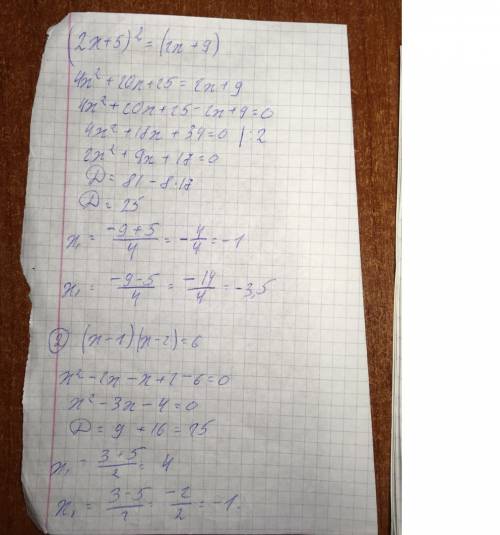 (2x+5)² = (2x+9)
4x²+20x+25 = 2x+9
4x²+20x+25-2x+9=0
4x²+18x+34=0 |:2
2x²+9x+17=0
D = 81-8·17
D = 25
x₁ = (-9+5)/4 = -4/4 = -1
x₁ = (-9-5)/4 = -14/4 = -3,5
② (x-1)(x-2)=6
x²-2x-x+2-6=0
x²-3x-4=0
D = 9+16=25
x₁ = (3+5)/2 = 4
x₁ = (3-5)/2 = -2/2 = -1.